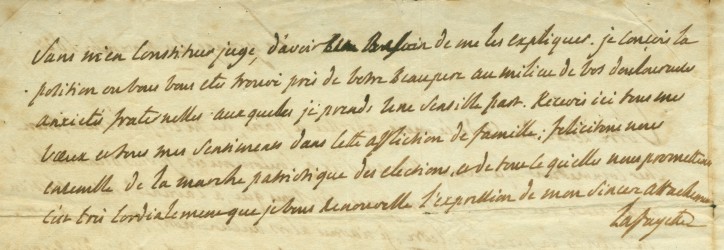 Sans m'en constituer juge, d'avoir bien besoin de me les expliquer. je conçois la
position ou vous vous etes trouvé près de votre beaupere au milieu de vos douloureuses
anxietés fraternelles auxqueles je prends une sensible part. Recevez ici tous mes
vœux et tous mes sentiments dans cette affliction de famille; felicitons nous
ensemble de la marche patriotique des elections, et de tout ce qu'elles nous promettent
c'est très cordialement que je vous renouvelle l'expression de mon sincer attachement
Lafayette